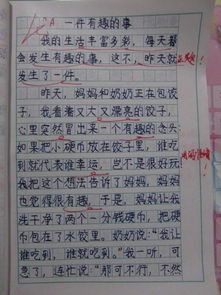 一件有趣的事
我的生活丰富多彩,每天都
会发生有趣的事,这不,昨天就
发生了一件。
昨天,妈妈和奶奶正在包饺
子,我看着又大又漂亮的饺子,
心里突然冒出来一个有趣的念头:
如果把小硬币放在饺子里,谁吃
到就代表谁幸运,岂不是很好玩
我把这个想法告诉了妈妈,妈妈
也觉得很有趣,于是,妈妈让我
洗干净了两个一分钱硬币,把硬
币包在了水饺里。奶奶说:“我让
谁吃到,谁就吃到。”我一听,可
急了,连忙说:“那可不行,不然